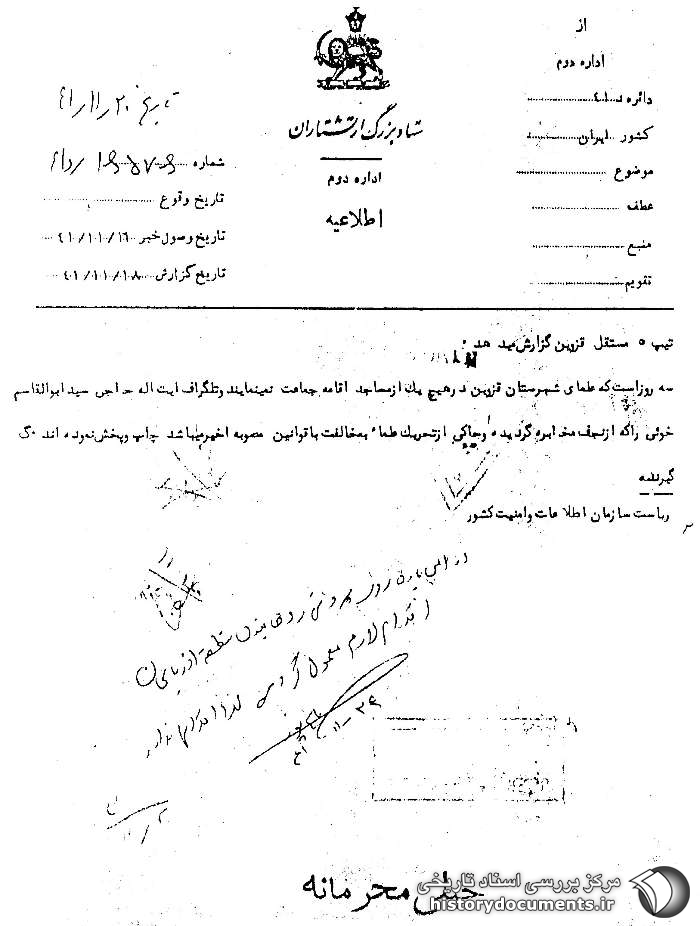 از
اداره دوم
دائره
کشور ایران
موضوع
عطف
منبع
تقویم
ستاد بزرگ ارتشتاران
اداره دوم
اطلاعیه
تاریخ ۲۰/۱۱/۴۱
شماره
تاریخ وقوع
تاریخ وصول خبر ۴۱/۱۱/۱۶
تاریخ گزارش ۴۱/۱۱/۱۸
تیپ ۵ مستقل قزوین گزارش میدهد :
سه روز است که علمای شهرستان قزوین در هیچ یک از مساجد اقامه جماعت نمینمایند وتلگراف ایت اله حاجی سید ابوالقاسم
خوئی را که از نجف مخابره گردیده و حاکی از تحریک علماء به مخالفت با قوانین مصوبه اخیر میباشد چاپ وپخش نموده اند گ
گیرنده
ریاست سازمان اطلاعات وامنیت کشور
اقدام لازم معمول
خیلی محرمانه
مرکز بررسی اسناد تاریخی
historydocuments.ir